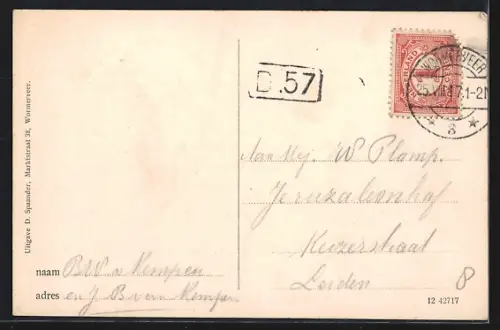 Uitgave D. Spaander, Marktstraat 38, Wormerveer.
D.57
NEDERLAND
1
WORMERVEER
25.VIII.17.1-2N
3
Aan Mej. W Plamp.
Jeruzalemhof
Keizerstraat
Leiden
8
naam B.W. v Kempen
adres en J B van Kempen
12 42717